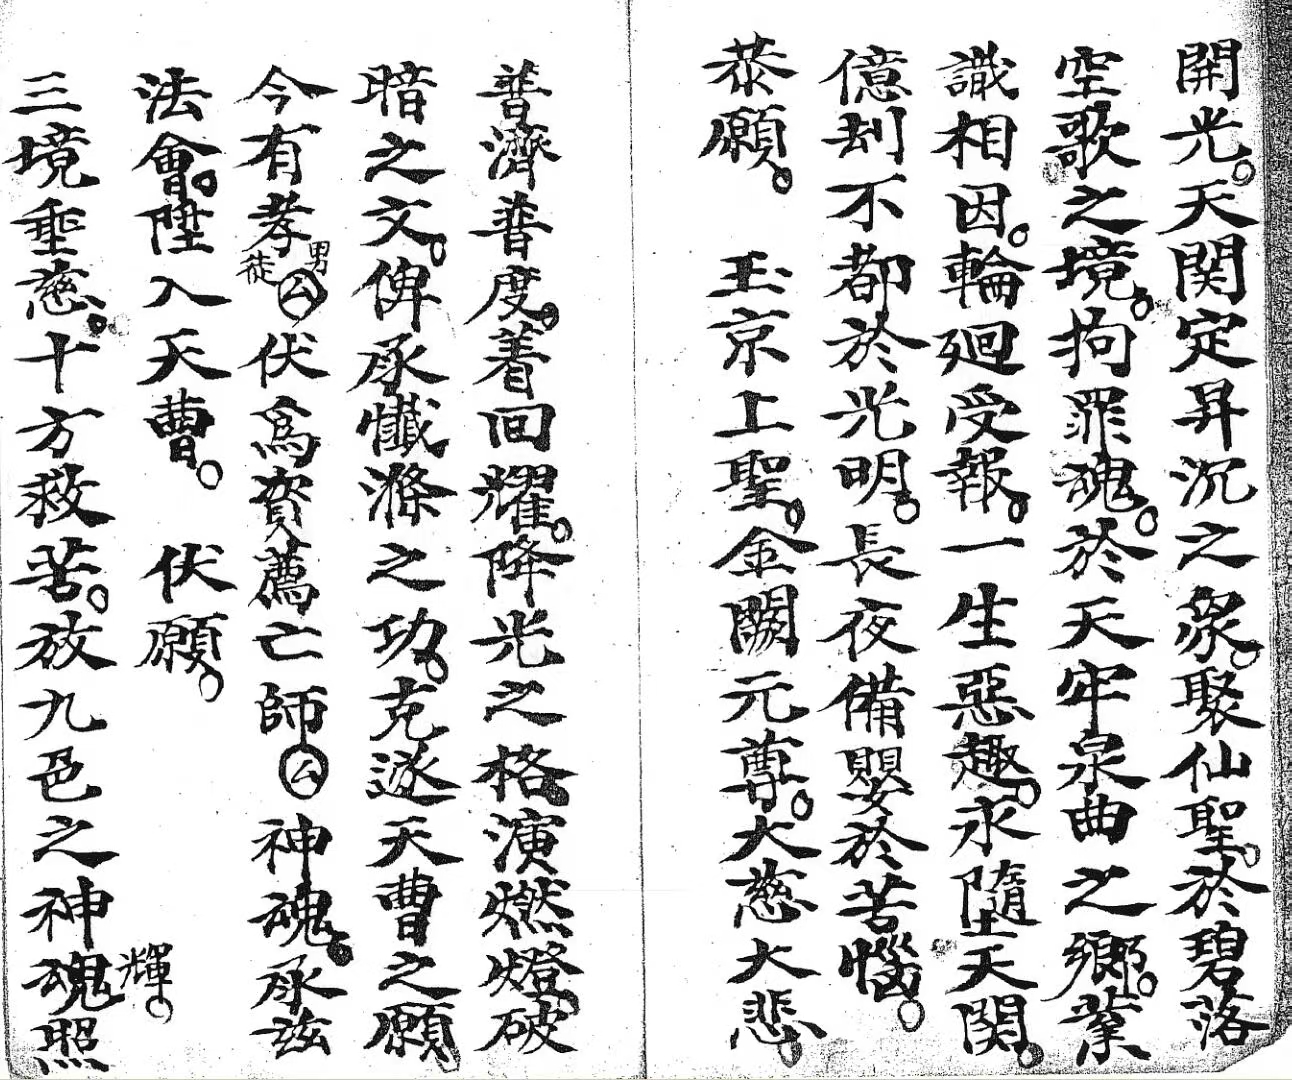 開光。天関定昇沉之衆。聚仙聖。於碧落
空歌之境。拘罪魂。於天牢泉曲之鄉。業
識相因。輪廻受報。一生惡趣。永墮天関。
億刦不都於光明。長夜備嬰於苦惱。
恭願。 玉京上聖。金闕元尊。大慈大悲。
普濟普度。着回耀。降光之格。演燃燈。破
暗之文。俾承懺滌之功。克遂天曹之願。
今有孝男徒厶伏為資薦亡師厶神魂。承茲
法會。陞入天曹。 伏願。
三境垂慈。十方救苦。放九色之神魂照
輝。